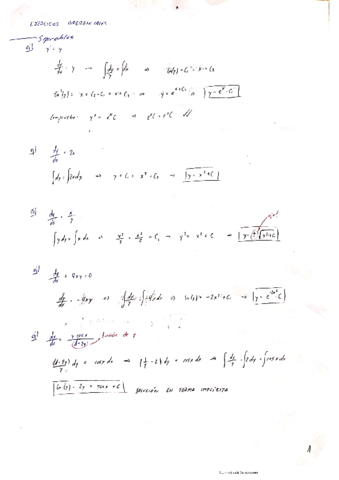 EJERCICIOS
Separables
a) y' = y
dy/dx = y → ∫dy/y = ∫dx ⇒ ln(y) + C₁ = x + C₂
ln(y) = x + C₂ - C₁ = x + C₃ ⇒ y = e^(x+C₃) ⇒ y = e^x · C
y' = e^x C ⇒ e^x C = e^x C //
dy/dx = 2x
∫dy = ∫2x dx ⇒ y + C₁ = x² + C₂ → y = x² + C
dy/dx = x/y
∫y dy = ∫x dx ⇒ y²/2 = x²/2 + C₁ → y² = x² + C ⇒ y = √(x² + C)
dy/dx + 4xy = 0
dy/dx = -4xy ⇒ ∫dy/y = ∫-4x dx ⇒ ln(y) = -2x² + C₁ → y = e^(-2x²) · C
dy/dx = y cos x / (1-2y) función de y
(1-2y)/y dy = cos x dx ⇒ (1/y - 2) dy = cos x dx ⇒ ∫dy/y - ∫2 dy = ∫cos x dx
ln(y) - 2y = sen x + C SOLUCIÓN EN FORMA IMPLÍCITA